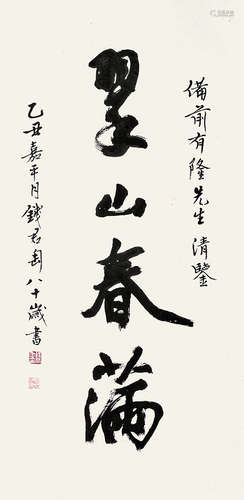 備前有隆先生清鑒
翠山春滿
乙丑嘉平月錢君匋八十歲書